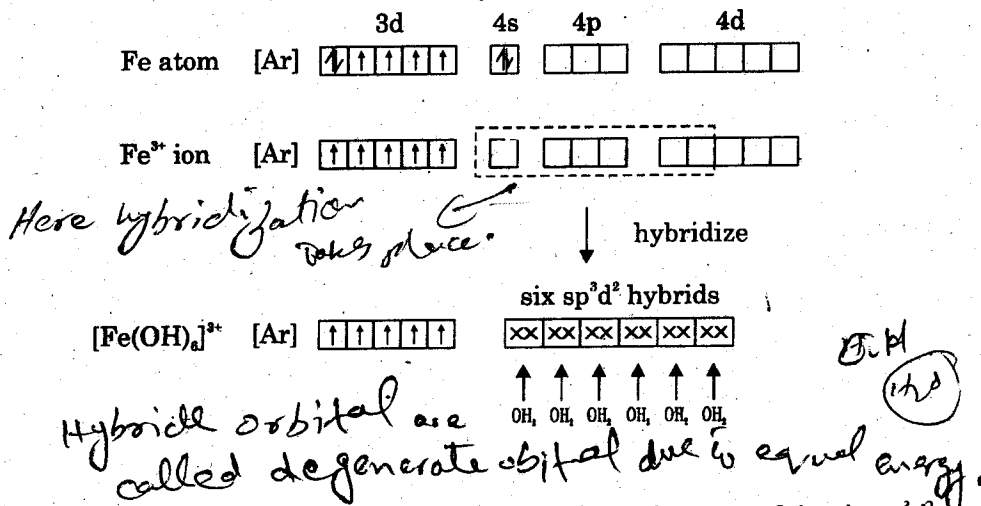 3d 4s 4p 4d
Fe atom [Ar]
Fe³⁺ ion [Ar]
Here hybridization
takes place.
hybridize
six sp³d² hybrids
[Fe(OH)₆]³⁺ [Ar] xx xx xx xx xx xx
OH₂ OH₂ OH₂ OH₂ OH₂ OH₂
Hybride orbital are
called degenerate obital due to equal energy.